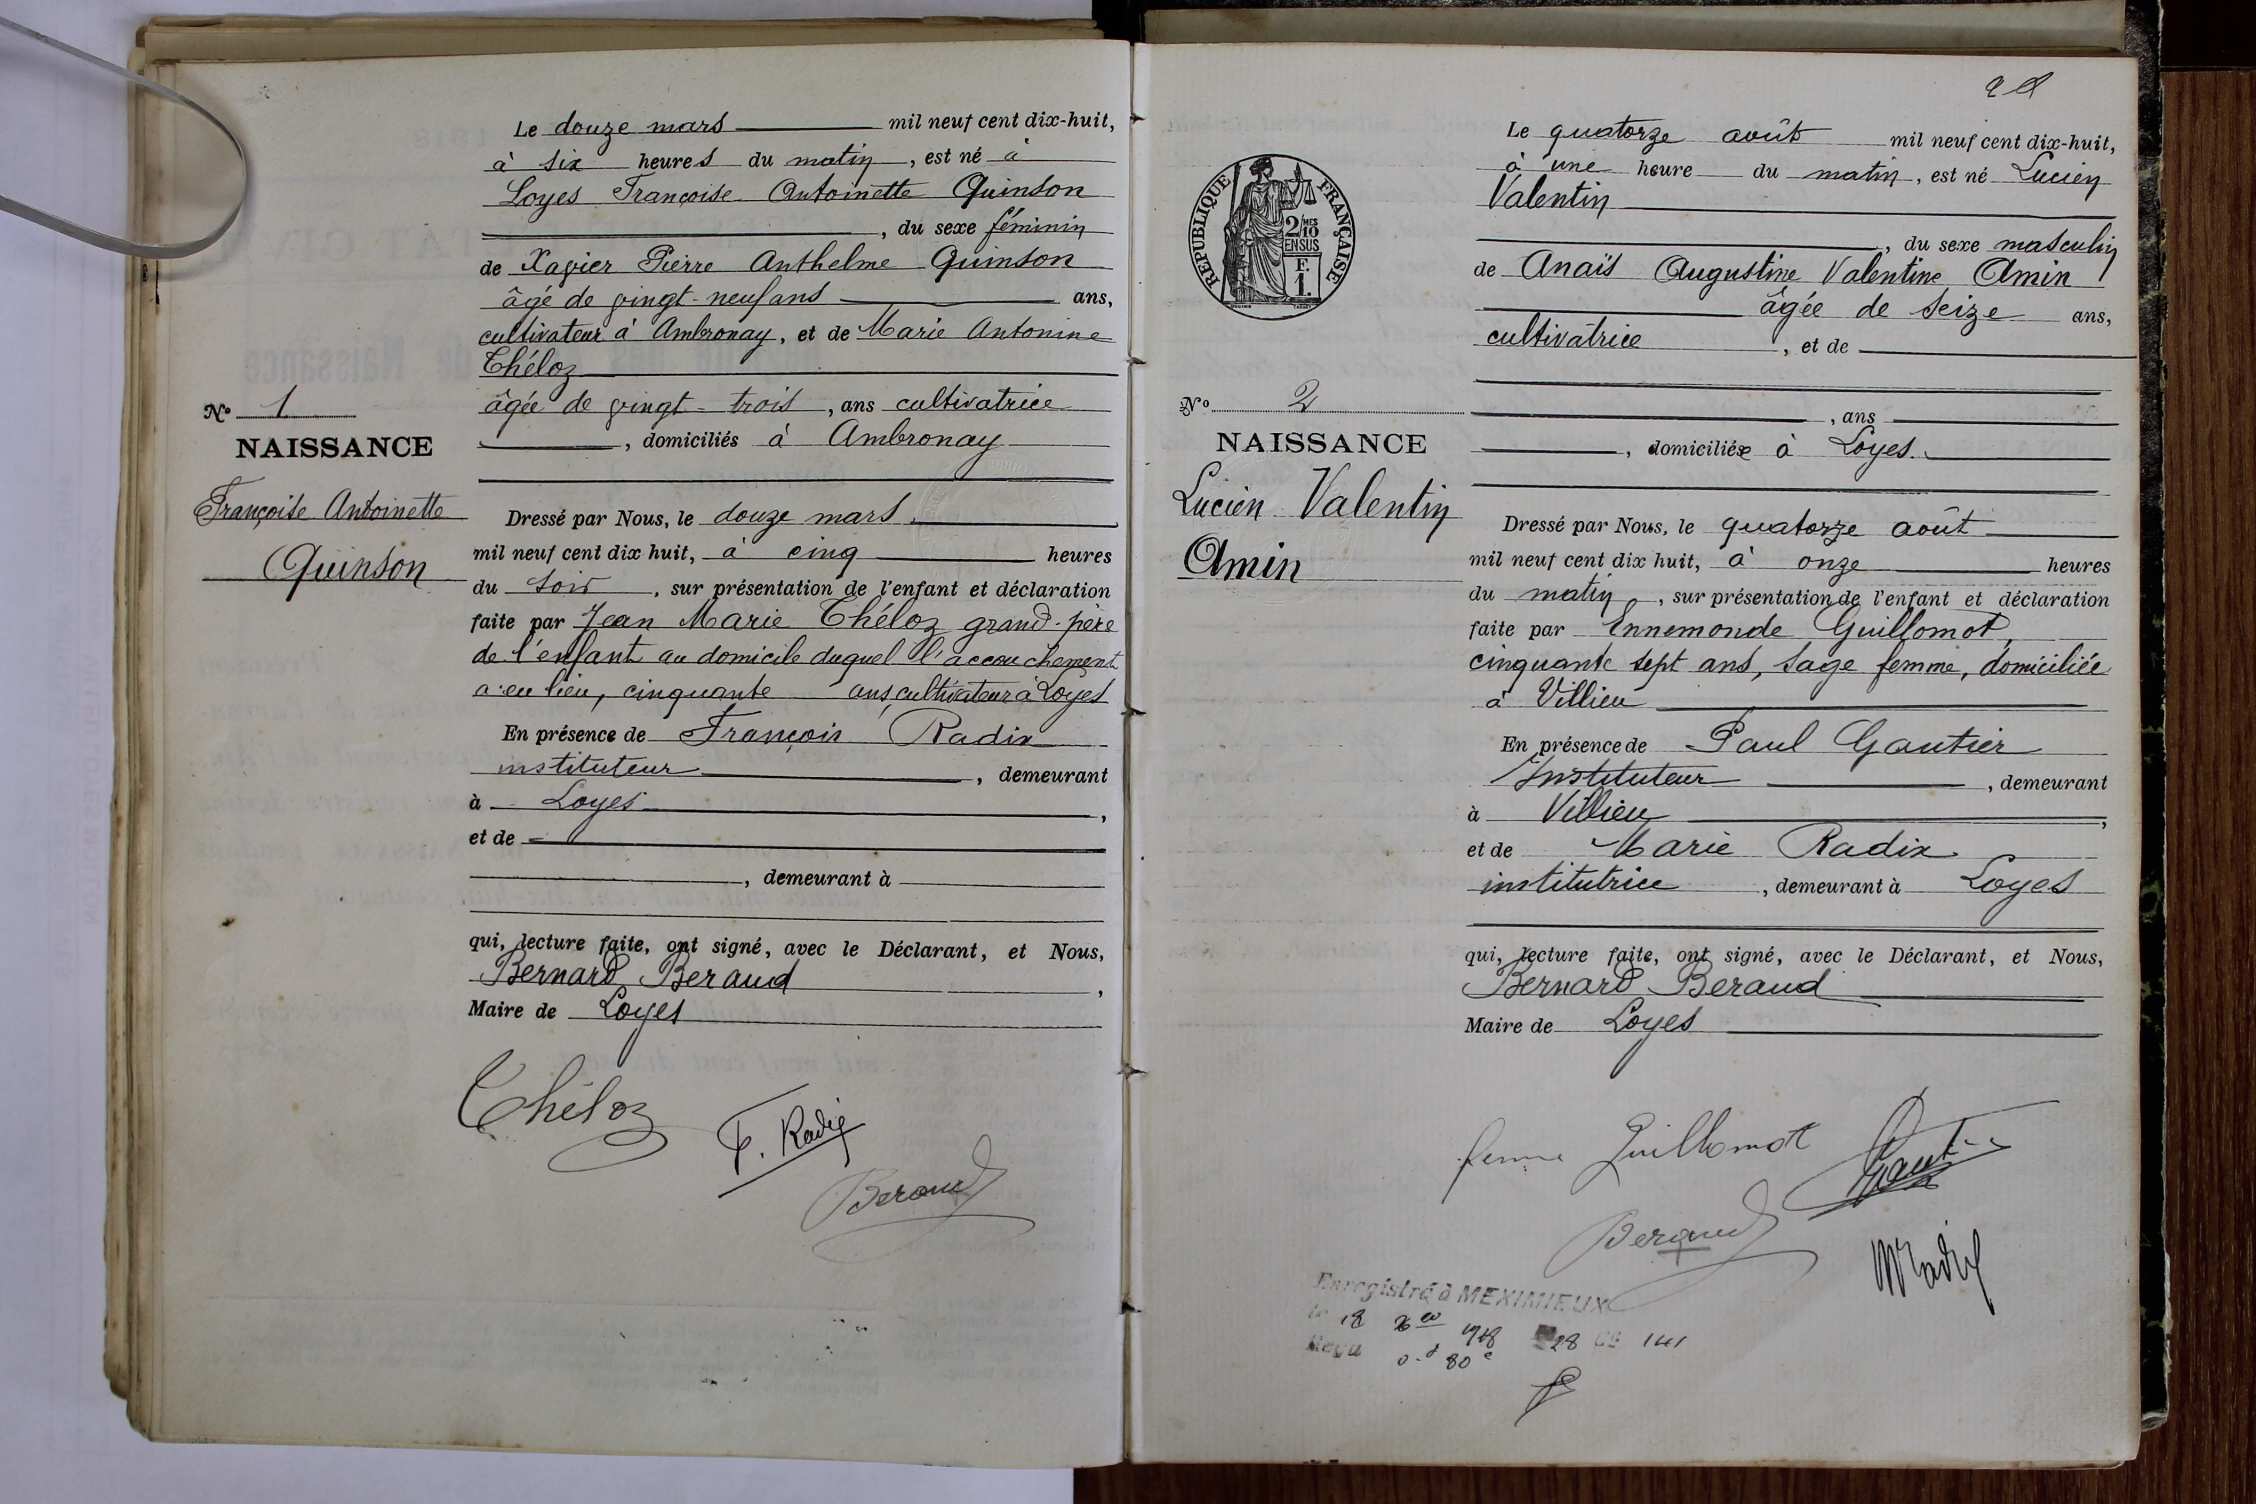 Le douze mars mil neuf cent dix-huit,
à six heures du matin, est né à
Loyes Françoise Antoinette Quinson
, du sexe féminin
de Xavier Pierre Anthelme Quinson
âgé de vingt-neuf ans ans,
cultivateur à Ambronay, et de Marie Antonine
Théloz
âgée de vingt-trois, ans cultivatrice
, domiciliés à Ambronay
No 1
NAISSANCE
Françoise Antoinette
Quinson
Dressé par Nous, le douze mars
mil neuf cent dix huit, à cinq heures
du soir, sur présentation de l'enfant et déclaration
faite par Jean Marie Théloz grand-père
de l'enfant au domicile duquel l'accouchement
a eu lieu, cinquante ans, cultivateur à Loyes
En présence de François Radix
instituteur, demeurant
à Loyes,
et de
, demeurant à
qui, lecture faite, ont signé, avec le Déclarant, et Nous,
Bernard Beraud,
Maire de Loyes
Théloz
F. Radix
Beraud
Le quatorze août mil neuf cent dix-huit,
à une heure du matin, est né Lucien
Valentin
, du sexe masculin
de Anaïs Augustine Valentine Amin
âgée de seize ans,
cultivatrice, et de
, ans
, domiciliée à Loyes.
RÉPUBLIQUE FRANÇAISE
2/10 MES
EN SUS
F.
1.
No 2
NAISSANCE
Lucien Valentin
Amin
Dressé par Nous, le quatorze août
mil neuf cent dix huit, à onze heures
du matin, sur présentation de l'enfant et déclaration
faite par Ennemonde Guillomot,
cinquante sept ans, sage femme, domiciliée
à Villieu
En présence de Paul Gautier
Instituteur, demeurant
à Villieu,
et de Marie Radix
institutrice, demeurant à Loyes
qui, lecture faite, ont signé, avec le Déclarant, et Nous,
Bernard Beraud
Maire de Loyes
femme Guillomot
Gautier
Beraud
M Radix
Enregistré à MEXIMIEUX
le 18 1918 28 Ce 141
Reçu 0 f 80 c